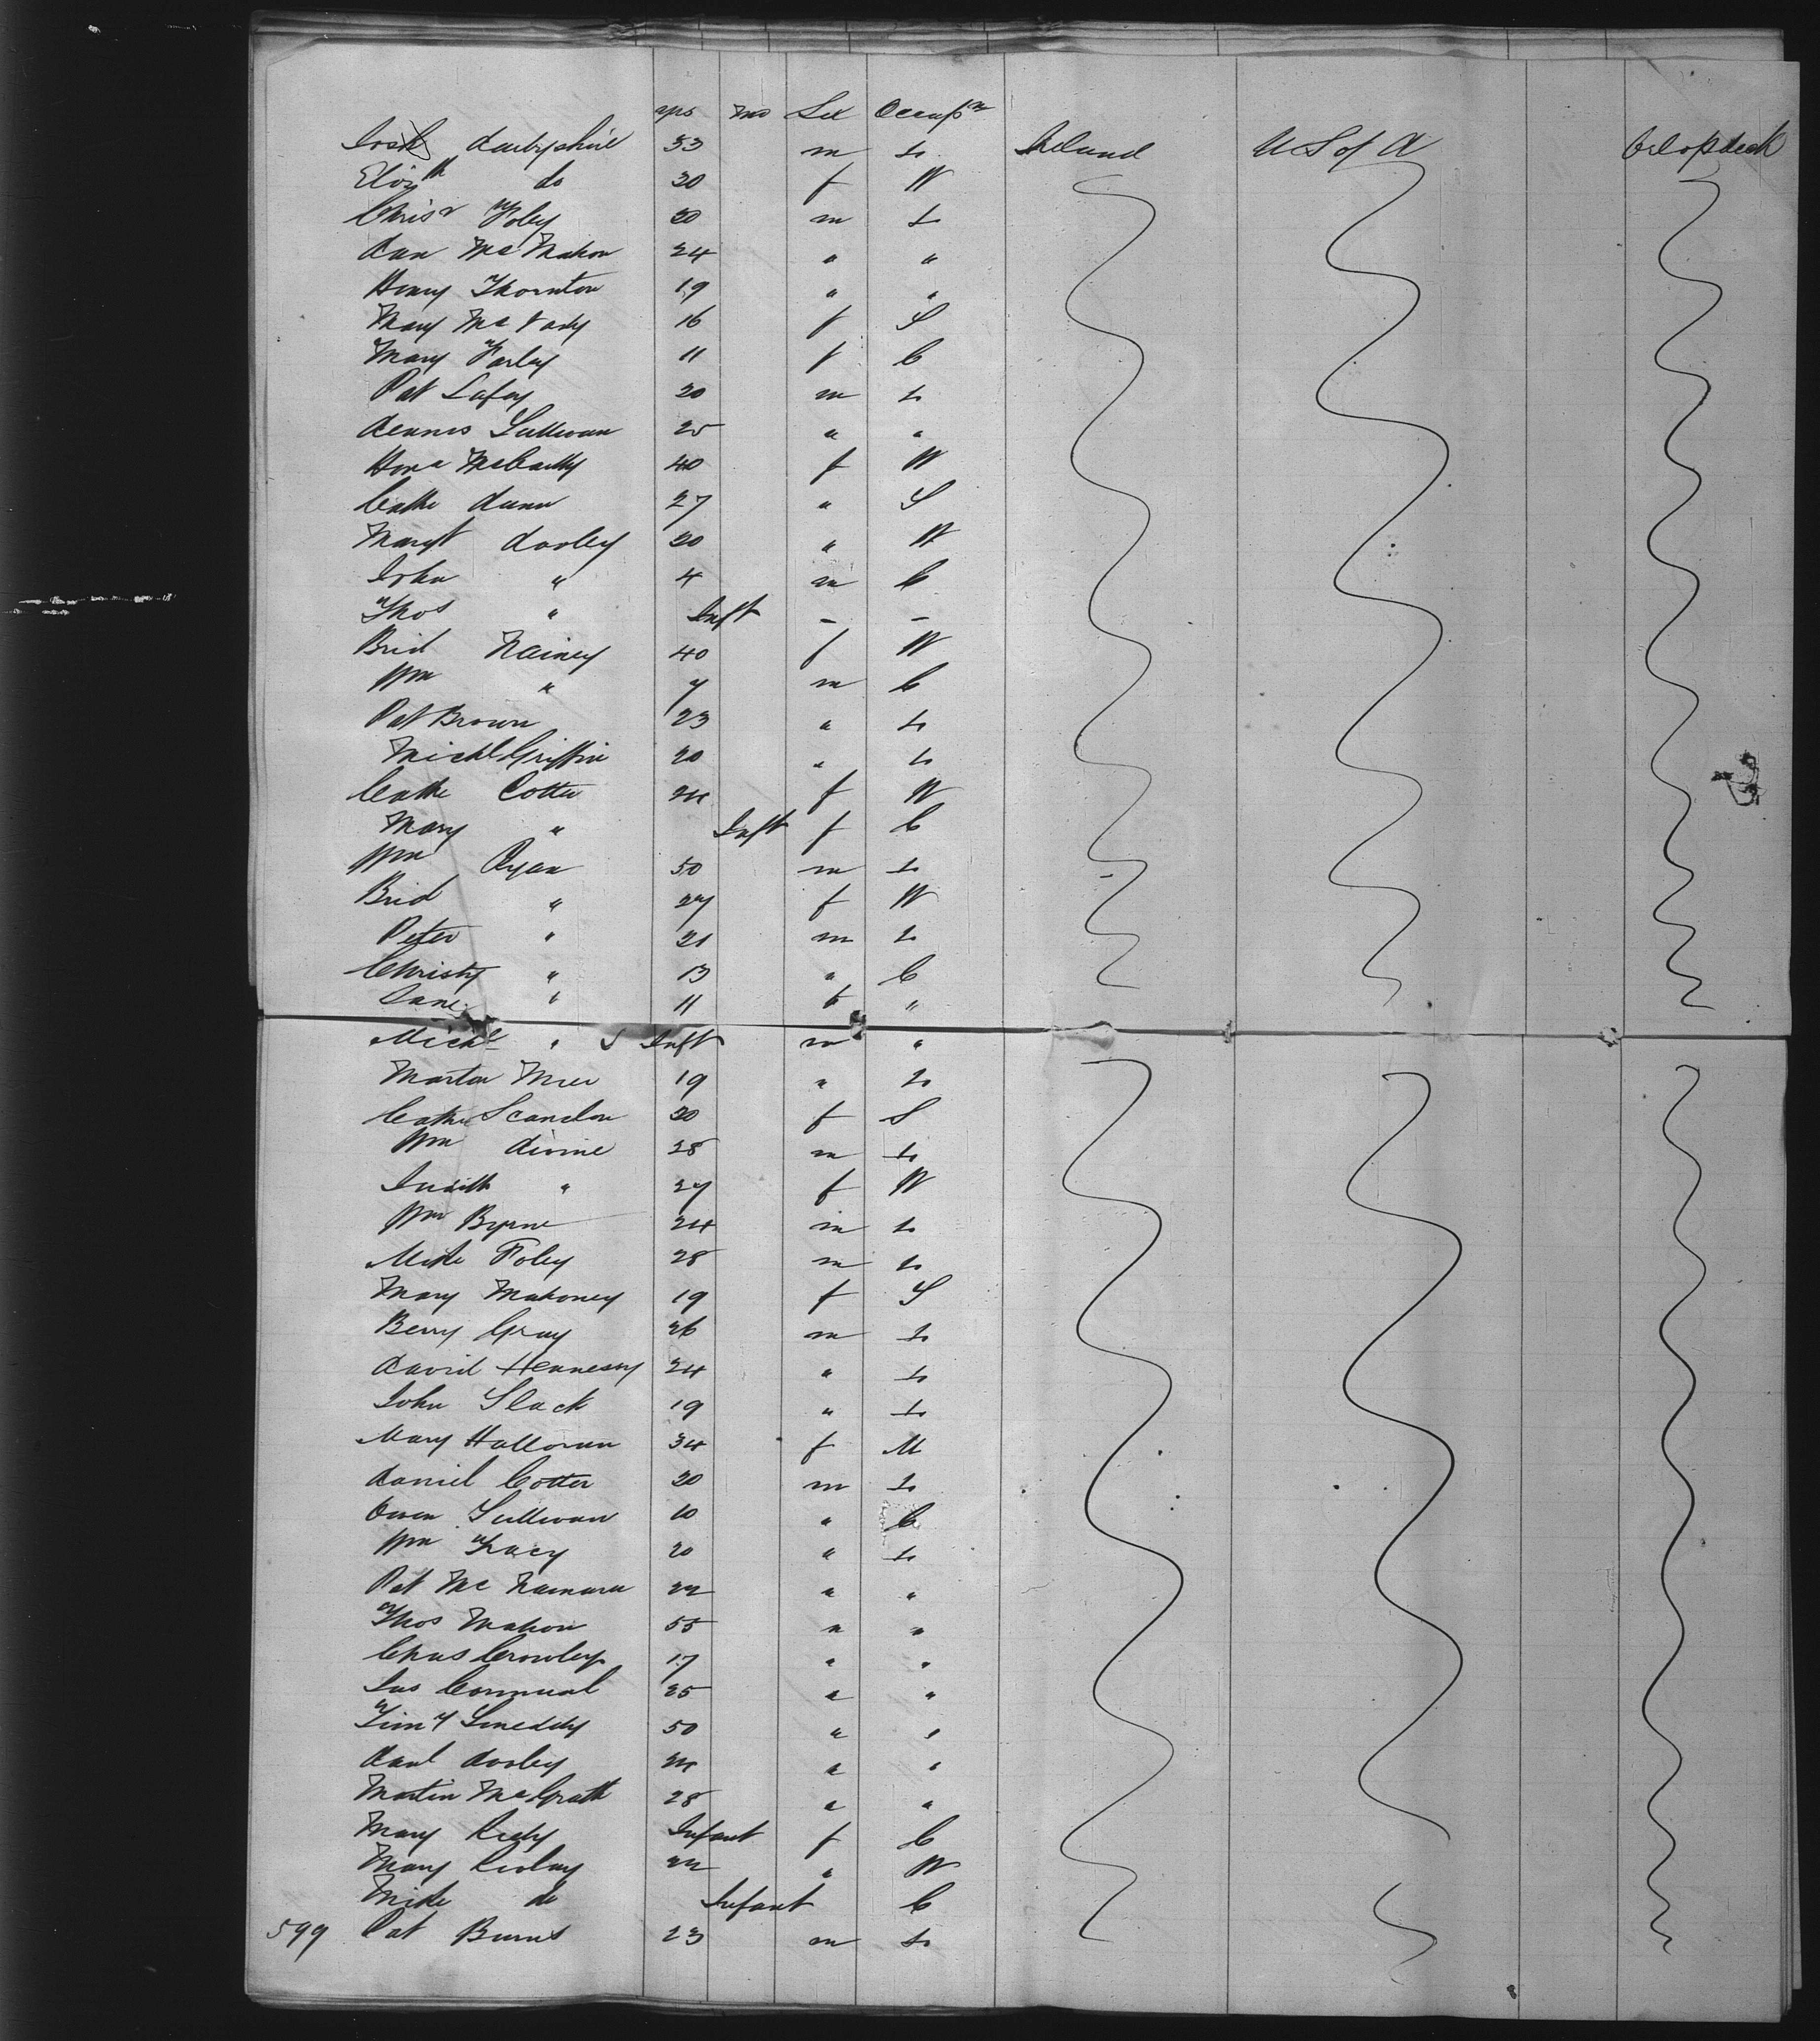 yrs mo Sex Occupn
Josh Darbyshire 33 m L Ireland U S of A Orlopdeck
Elizth do 30 f W
Chrisr Foley 20 m L
Dan McMahon 24 " "
Henry Thornton 19 " "
Mary Mc 16 f S
Mary Farley 11 f C
Pat Lafey 20 m L
Dennis Sullivan 25 " "
Hona McCarthy 40 f W
Cathe Dunn 27 " S
Margt Dooley 20 " W
John " 4 m C
Thos " Inft - -
Brid Nainey 40 f W
Wm " 7 m C
Pat Brown 23 " L
Michl Griffin 20 " L
Cathe Cotter 24 f W
Mary " Inft f C
Wm Ryan 50 m L
Brid " 27 f W
Peter " 21 m L
Christy " 13 " C
Jane " 11 f "
Michl " Inft m "
Martin 19 " L
Cathe Scanlon 20 f S
Wm Divine 28 m L
Judith " 27 f W
Wm Byrne 24 m L
Mike Foley 28 m L
Mary Mahoney 19 f S
Berry Gray 26 m L
David Hennessy 24 " L
John Slack 19 " L
Mary Halloran 34 f M
Daniel Cotter 20 m L
Owen Sullivan 10 " C
Wm Tracy 20 " L
Pat McNamara 22 " "
Thos Mahon 55 " "
Chas Crowley 17 " "
Jas 25 " "
Timy Smeddy 50 " "
Danl Dooley 24 " "
Martin McGrath 28 " "
Mary Infant f C
Mary 22 " W
Mike do Infant C
599 Pat Burns 23 m L